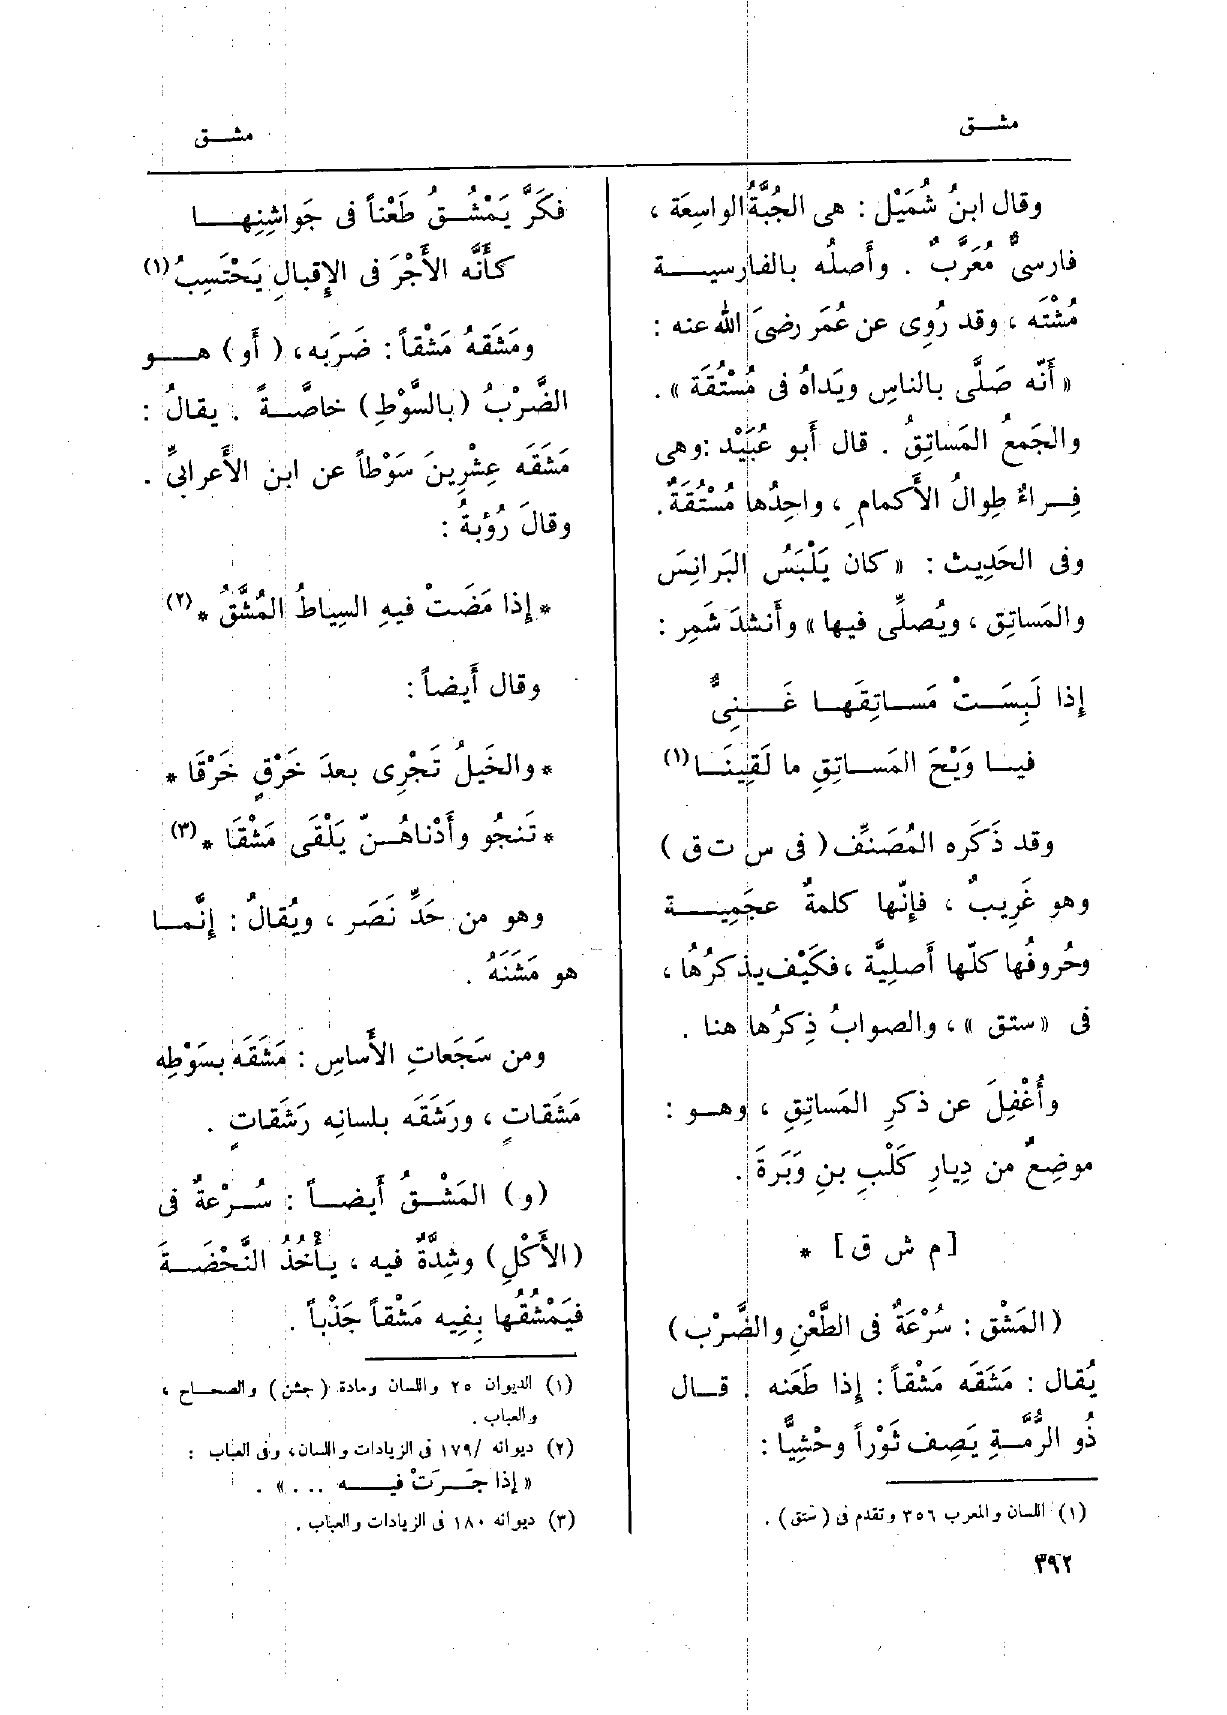 مشـــق
مشـــق
وقال ابنُ شُمَيْل : هى الجُبَّةُ الواسِعَة ،
فارسىٌّ مُعَرَّبٌ . وأَصلُه بالفارسيـــة
مُشْتَه ، وقد رُوِى عن عُمَر رضىَ الله عنه :
« أَنّه صَلَّى بالناسِ ويَداهُ فى مُسْتُقَة » .
والجَمعُ المَساتِقُ . قال أَبو عُبَيْد :وهى
فِــراءٌ طِوالُ الأَكمامِ ، واحِدُها مُسْتُقَةٌ.
وفى الحَدِيث : « كان يَلْبَسُ البَرانِسَ
والمَساتِق ، ويُصلِّى فيها » وأَنشَدَ شَمِر :
إِذا لَبِسَــتْ مَســاتِقَهــا غَــنِىٌّ
فيــا وَيْحَ المَســاتِقِ ما لَقِينَــا (١)
وقد ذَكَره المُصَنِّف ( فى س ت ق )
وهو غَرِيبٌ ، فإِنّها كلمةٌ عجَمِيــة
وحُروفُها كلّها أَصلِيَّة ، فكَيْف يذكرُها ،
فى « ستق » ، والصوابُ ذِكرُها هنا .
وأُغْفِلَ عن ذكرِ المَساتِقِ ، وهــو :
موضِعٌ من دِيارِ كَلْبِ بنِ وَبَرَةَ .
[ م ش ق ] *
( المَشْق : سُرْعَةٌ فى الطَّعْنِ والضَّرْب )
يُقال : مَشَقَه مَشْقاً : إِذا طَعَنه . قــال
ذُو الرُّمَّــةِ يَصِف ثَوْراً وحْشِيًّا :
(١) اللسان والمعرب ٣٥٦ وتقدم فى ( ستق ) .
٣٩٢
فكَرَّ يَمْشُــقُ طَعْناً فى جَواشِنِهــا
كأَنَّه الأَجْرَ فى الإِقبالِ يَحْتَسِبُ (١)
ومَشَقهُ مَشْقاً : ضَرَبه، ( أَو ) هـــو
الضَّرْبُ ( بالسَّوْطِ ) خاصَّــةً . يقالُ :
مَشَقَه عِشْرِينَ سَوْطاً عن ابن الأَعرابىِّ .
وقالَ رُؤبةُ :
* إِذا مَضَتْ فيهِ السِياطُ المُشَّقُ * (٢)
وقال أَيضاً :
* والخَيلُ تَجْرِى بعدَ خَرْقٍ خَرْقَا *
* تَنجُو وأَدْناهُــنّ يَلْقَى مَشْقَا * (٣)
وهو من حَدِّ نَصَر ، ويُقالُ : إِنَّمــا
هو مَشَنَهُ .
ومن سَجَعاتِ الأَساسِ : مَشَقَه بسَوْطِه
مَشَقاتٍ ، ورَشَقَه بلسانِه رَشَقاتٍ .
(و) المَشْــقُ أَيضــاً : سُــرْعةٌ فى
(الأَكْلِ) وشِدَّةٌ فيه ، يــأْخُذُ النَّحْضَــةَ
فيَمْشُقُها بفِيه مَشْقاً جَذْباً .
(١) الديوان ٢٥ واللسان ومادة ( جشن ) والصحــاح ،
والعباب .
(٢) ديوانه /١٧٩ فى الزيادات واللسان، وفى العباب :
« إذا جَــرَتْ فيــــه ... » .
(٣) ديوانه ١٨٠ فى الزيادات والعباب .